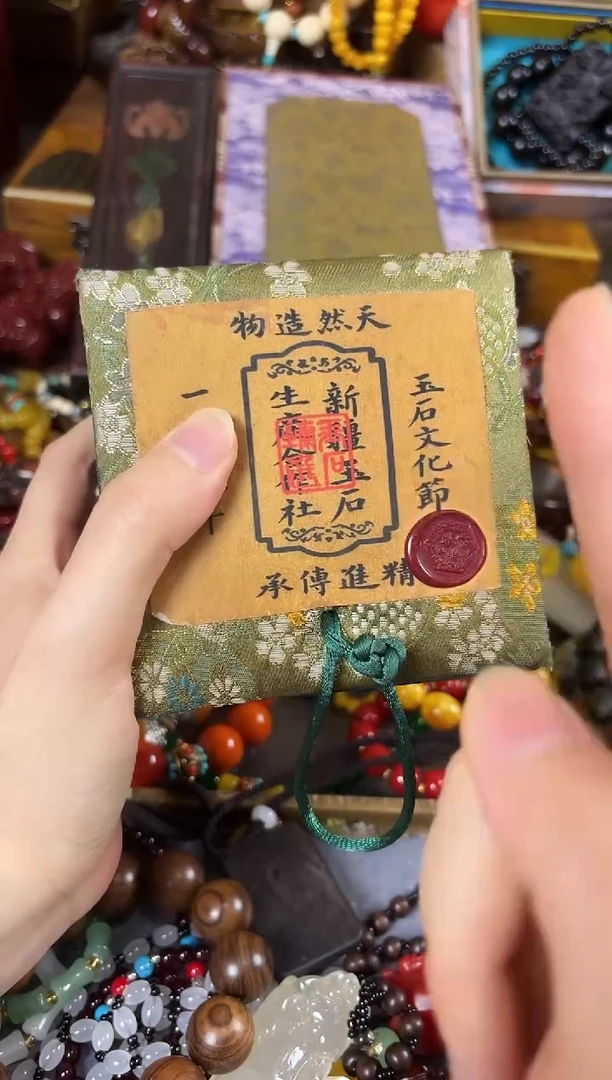 天然造物
玉石文化節
新疆玉石
生產合作社
一
精進傳承